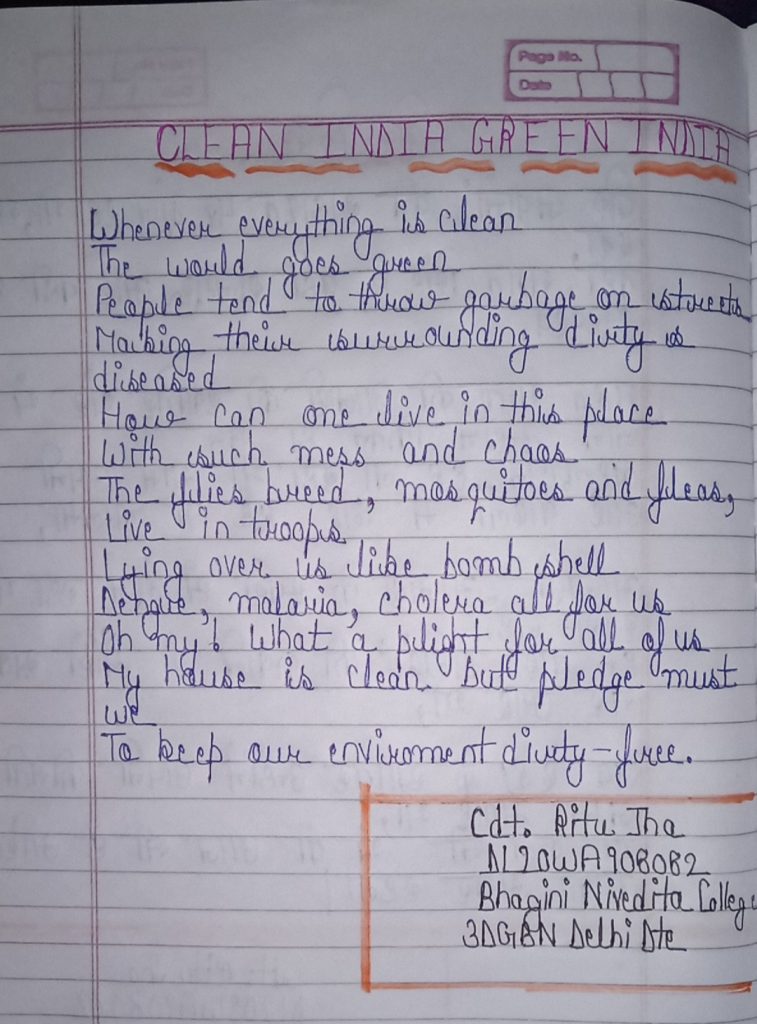 Page No.
Date
CLEAN INDIA GREEN INDIA
Whenever everything is clean
The world goes green
People tend to throw garbage on streets
Making their surrounding dirty &
diseased
How can one live in this place
With such mess and chaos
The flies breed, mosquitoes and fleas,
Live in troops
Lying over us like bomb shell
Dengue, malaria, cholera all for us
Oh my! What a plight for all of us
My house is clean but pledge must
we
To keep our enviroment dirty-free.
Cdt. Ritu Jha
DL20WA908082
Bhagini Nivedita College
3DGBN Delhi Dte